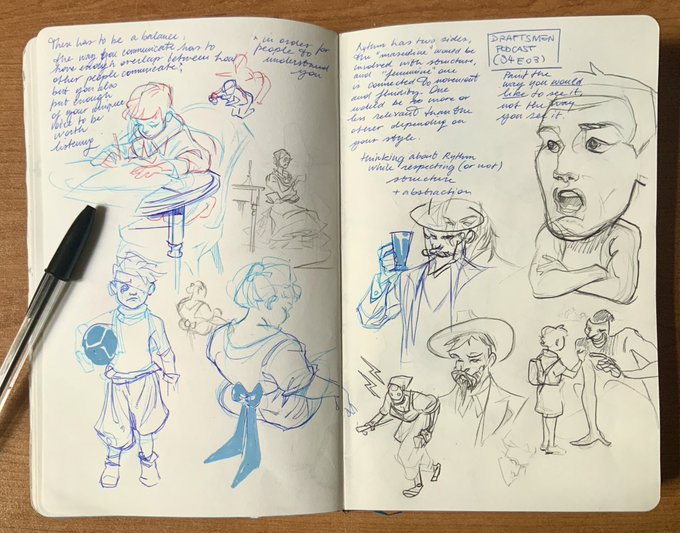 There has to be a balance,
the way you communicate has to
have enough overlap between how
other people comunicate,
but you also
put enough
of your unique
voice to be
worth
listening
* in order for
people to
understand
you
Rythm has two sides,
the "masculine" would be
involved with structure,
and "femenine" one
is connected to movement
and fluidity. One
would be more or
less relevant than the
other depending on
your style.
thinking about Rythm
while respecting (or not)
structure
+ abstraction
DRAFTSMEN
PODCAST
(S4E03)
Paint the
way you would
like to see it,
not the way
you see it.